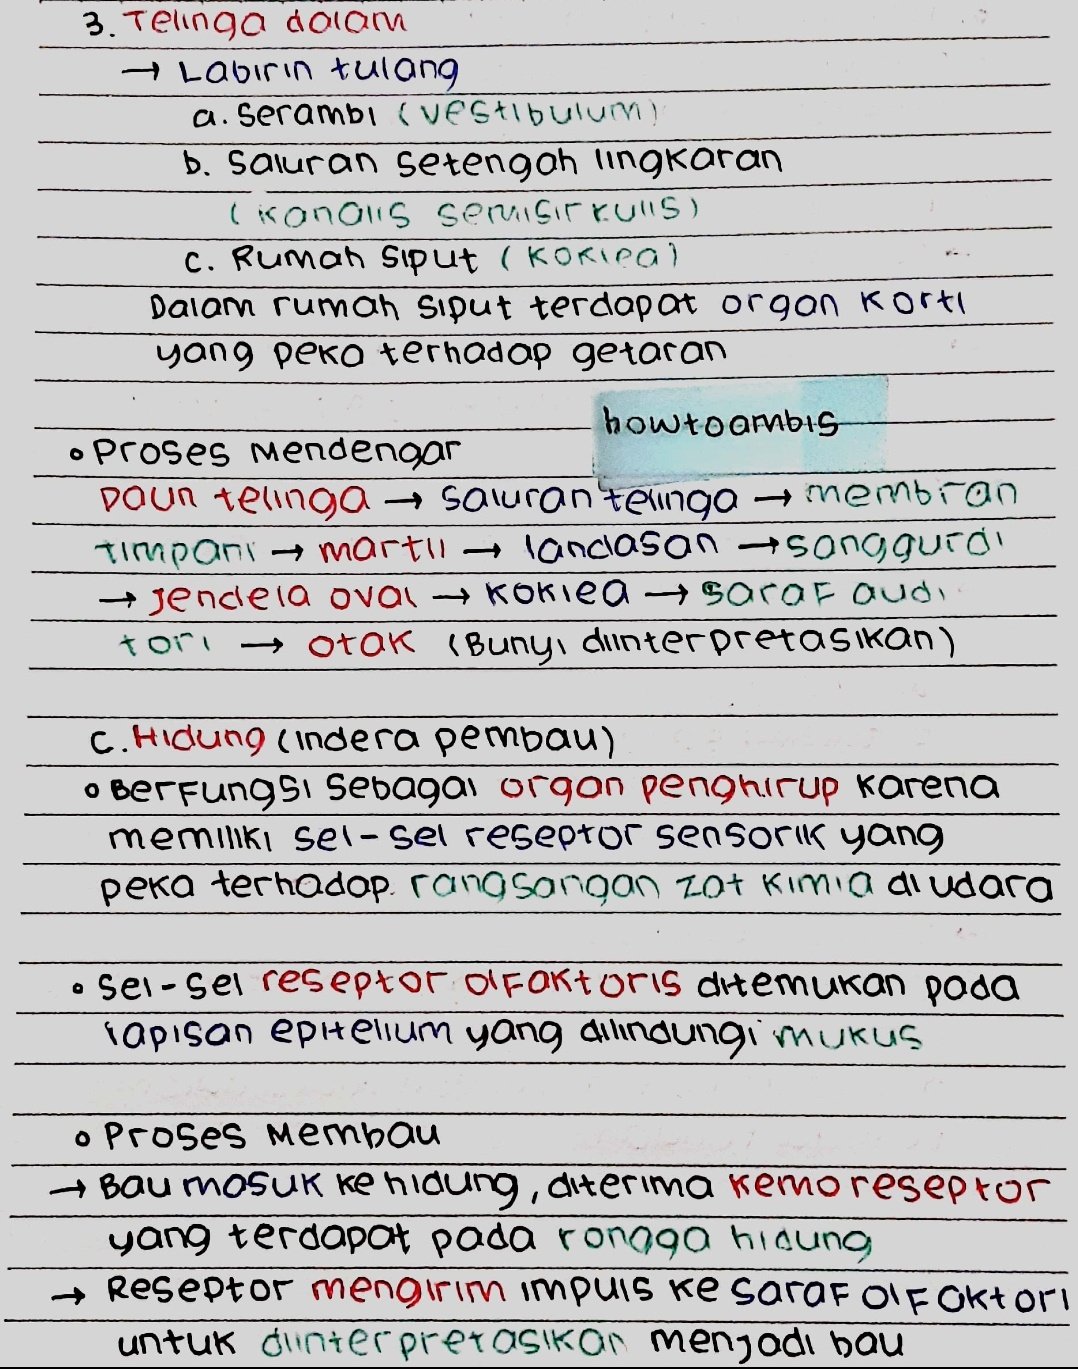 3. Telinga dalam
→ Labirin tulang
a. Serambi (vestibulum)
b. Saluran setengah lingkaran
(kanalis semisirkulis)
c. Rumah siput (koklea)
Dalam rumah siput terdapat organ korti
yang peka terhadap getaran
howtoambis
• Proses Mendengar
Daun telinga → saluran telinga → membran
timpani → martil → landasan → sanggurdi
→ jendela oval → koklea → saraf audi
tori → otak (Bunyi diinterpretasikan)
C. Hidung (indera pembau)
• Berfungsi sebagai organ penghirup karena
memiliki sel-sel reseptor sensorik yang
peka terhadap rangsangan zat kimia di udara
• Sel-sel reseptor olfaktoris ditemukan pada
lapisan epitelium yang dilindungi mukus
• Proses Membau
→ Bau masuk ke hidung, diterima kemoreseptor
yang terdapat pada rongga hidung
→ Reseptor mengirim impuls ke saraf olfaktori
untuk diinterpretasikan menjadi bau